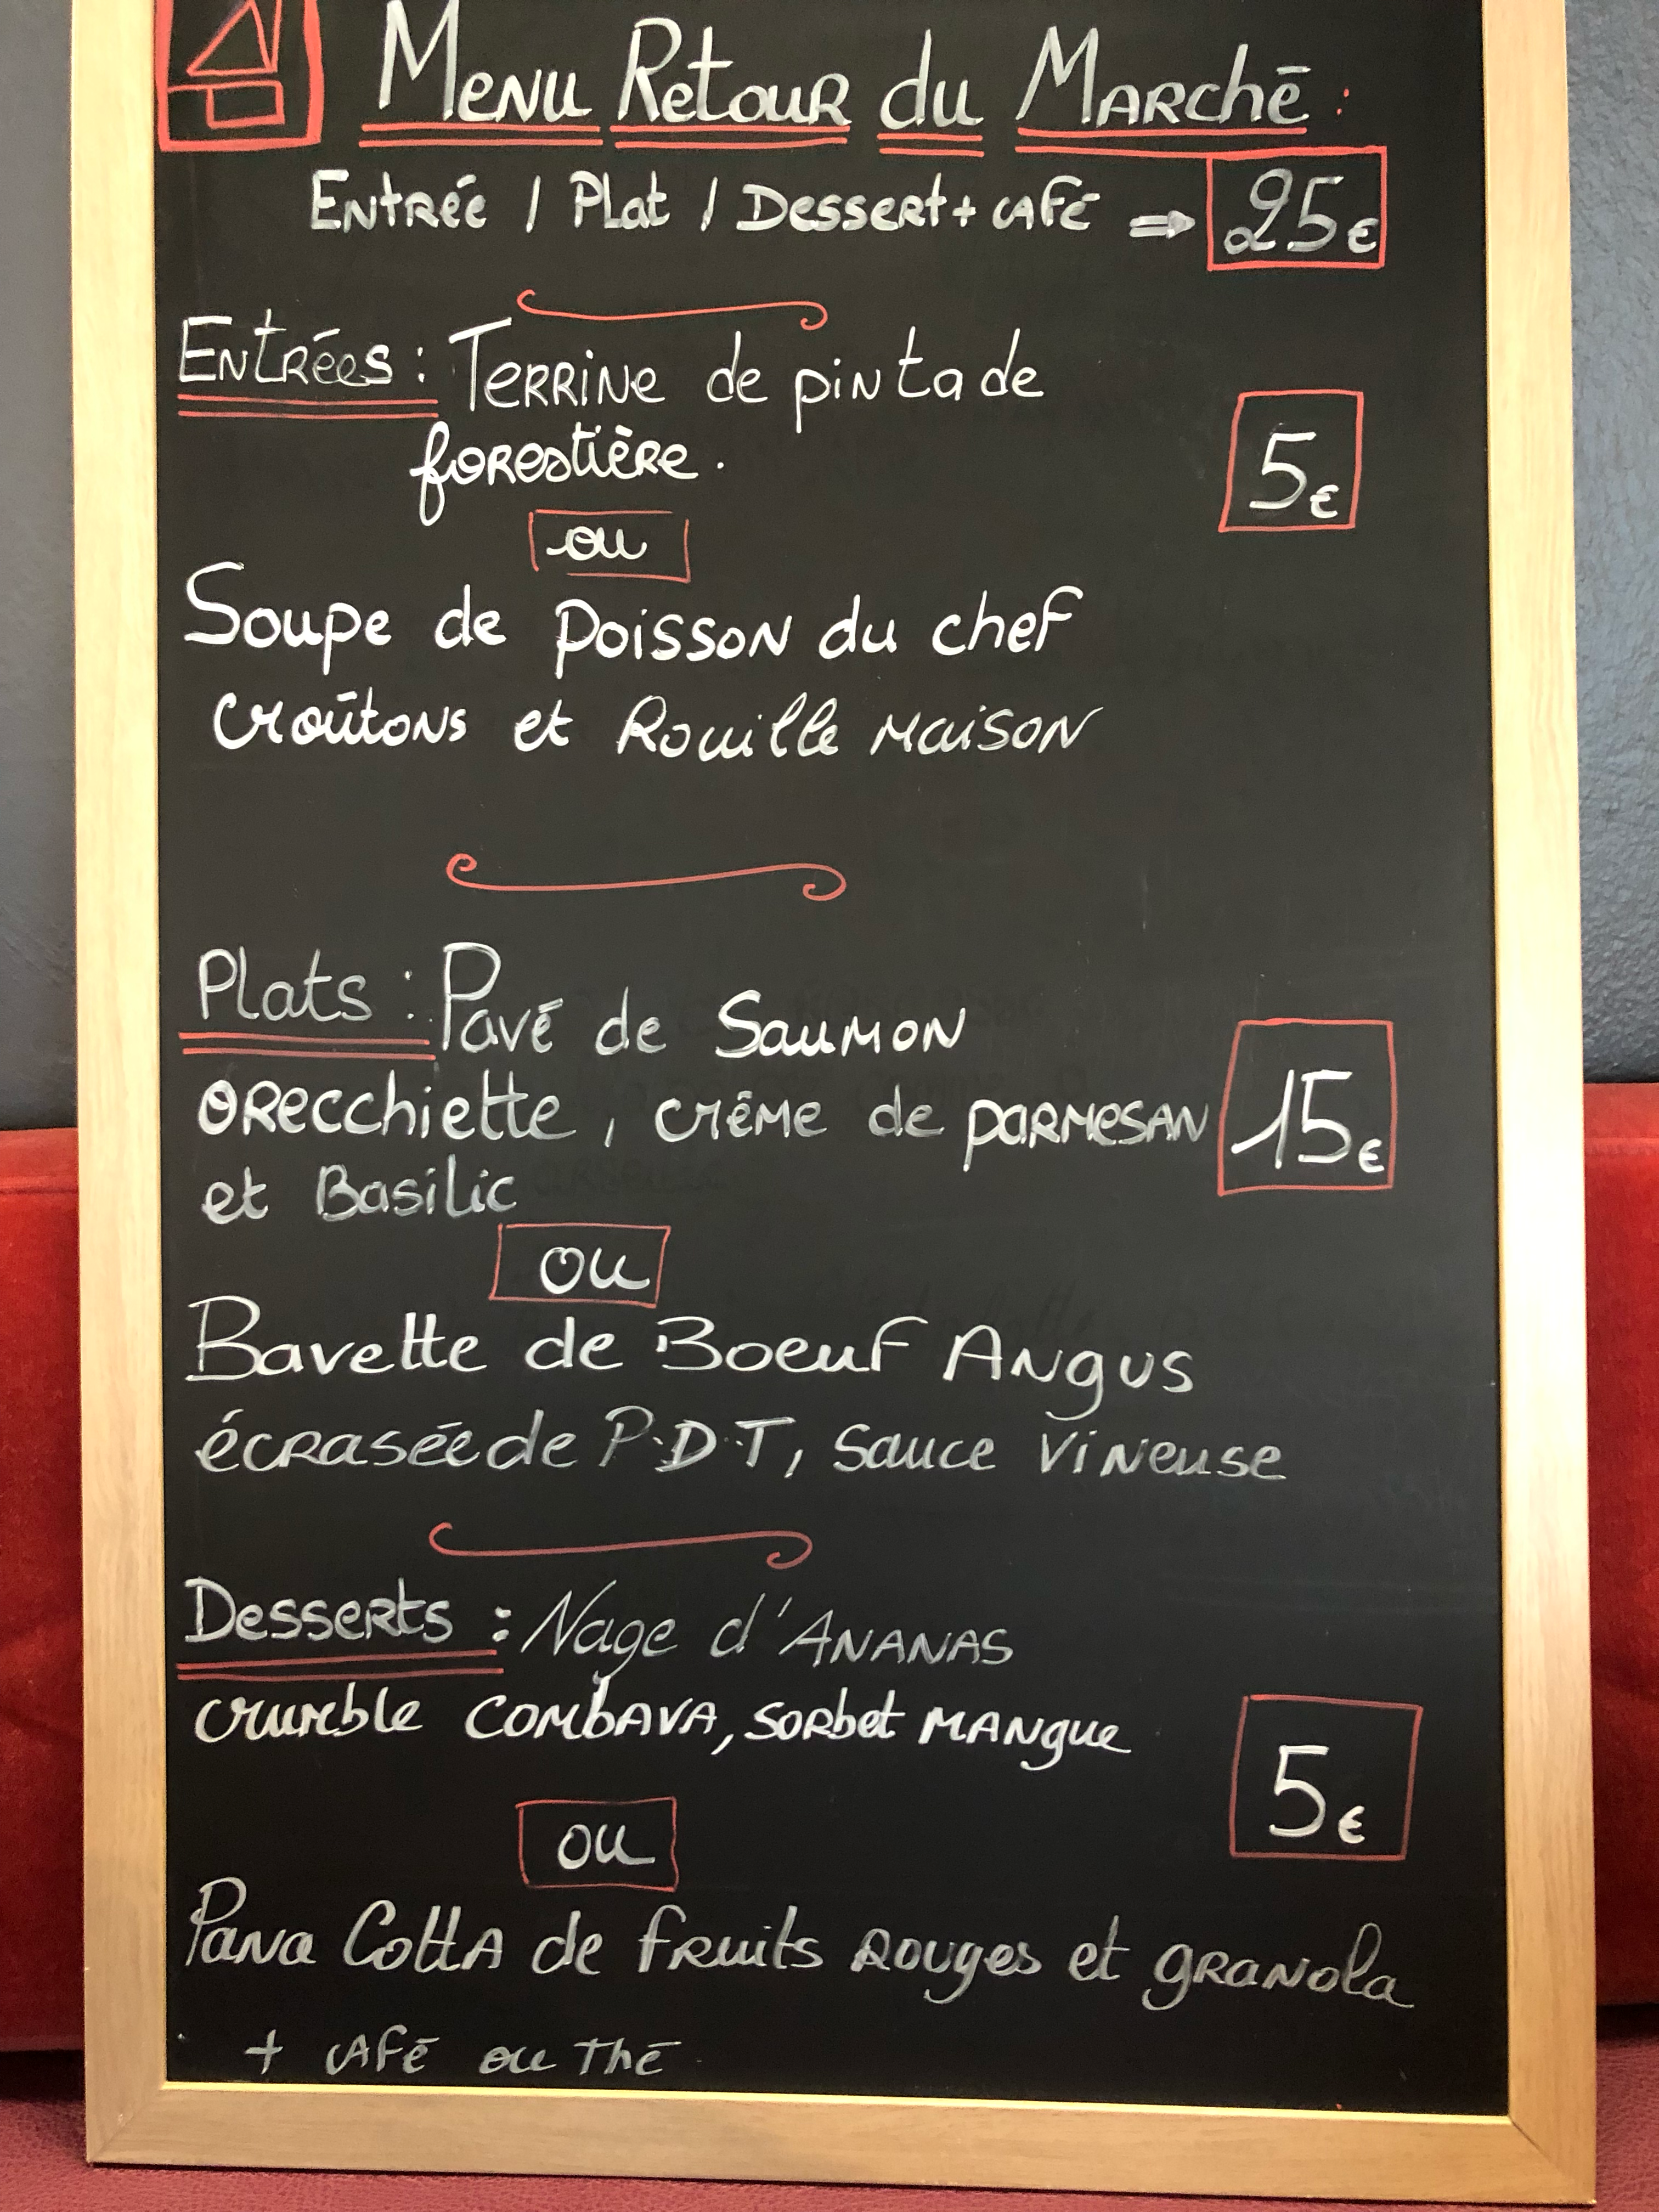 Menu Retour du Marché :
Entrée / Plat / Dessert + café ⇒ 25€
Entrées : Terrine de pintade
forestière.
5€
ou
Soupe de poisson du chef
croûtons et Rouille maison
Plats : Pavé de Saumon
orecchiette, crème de parmesan 15€
et Basilic
ou
Bavette de Boeuf Angus
écrasée de P.D.T, sauce vineuse
Desserts : Nage d'Ananas
crumble combava, sorbet mangue
5€
ou
Pana Cotta de fruits rouges et granola
+ café ou thé